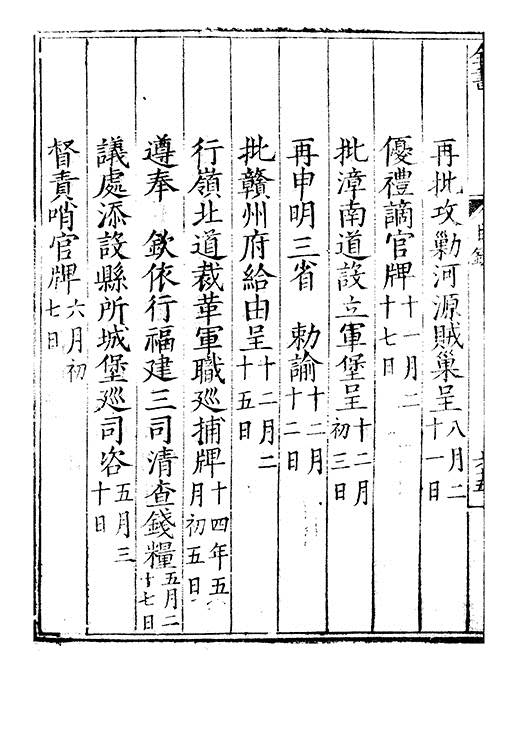 再批攻勦河源賊巢呈八月二十一日
優禮謫官牌十一月二十七日
批漳南道設立軍堡呈十二月初三日
再申明三省　勅諭十二月十二日
批贛州府給由呈十二月二十五日
行嶺北道裁革軍職廵捕牌十四年五月初五日
遵奉　欽依行福建三司清查錢糧五月二十七日
議處添設縣所城堡廵司咨五月三十日
督責哨官牌六月初七日